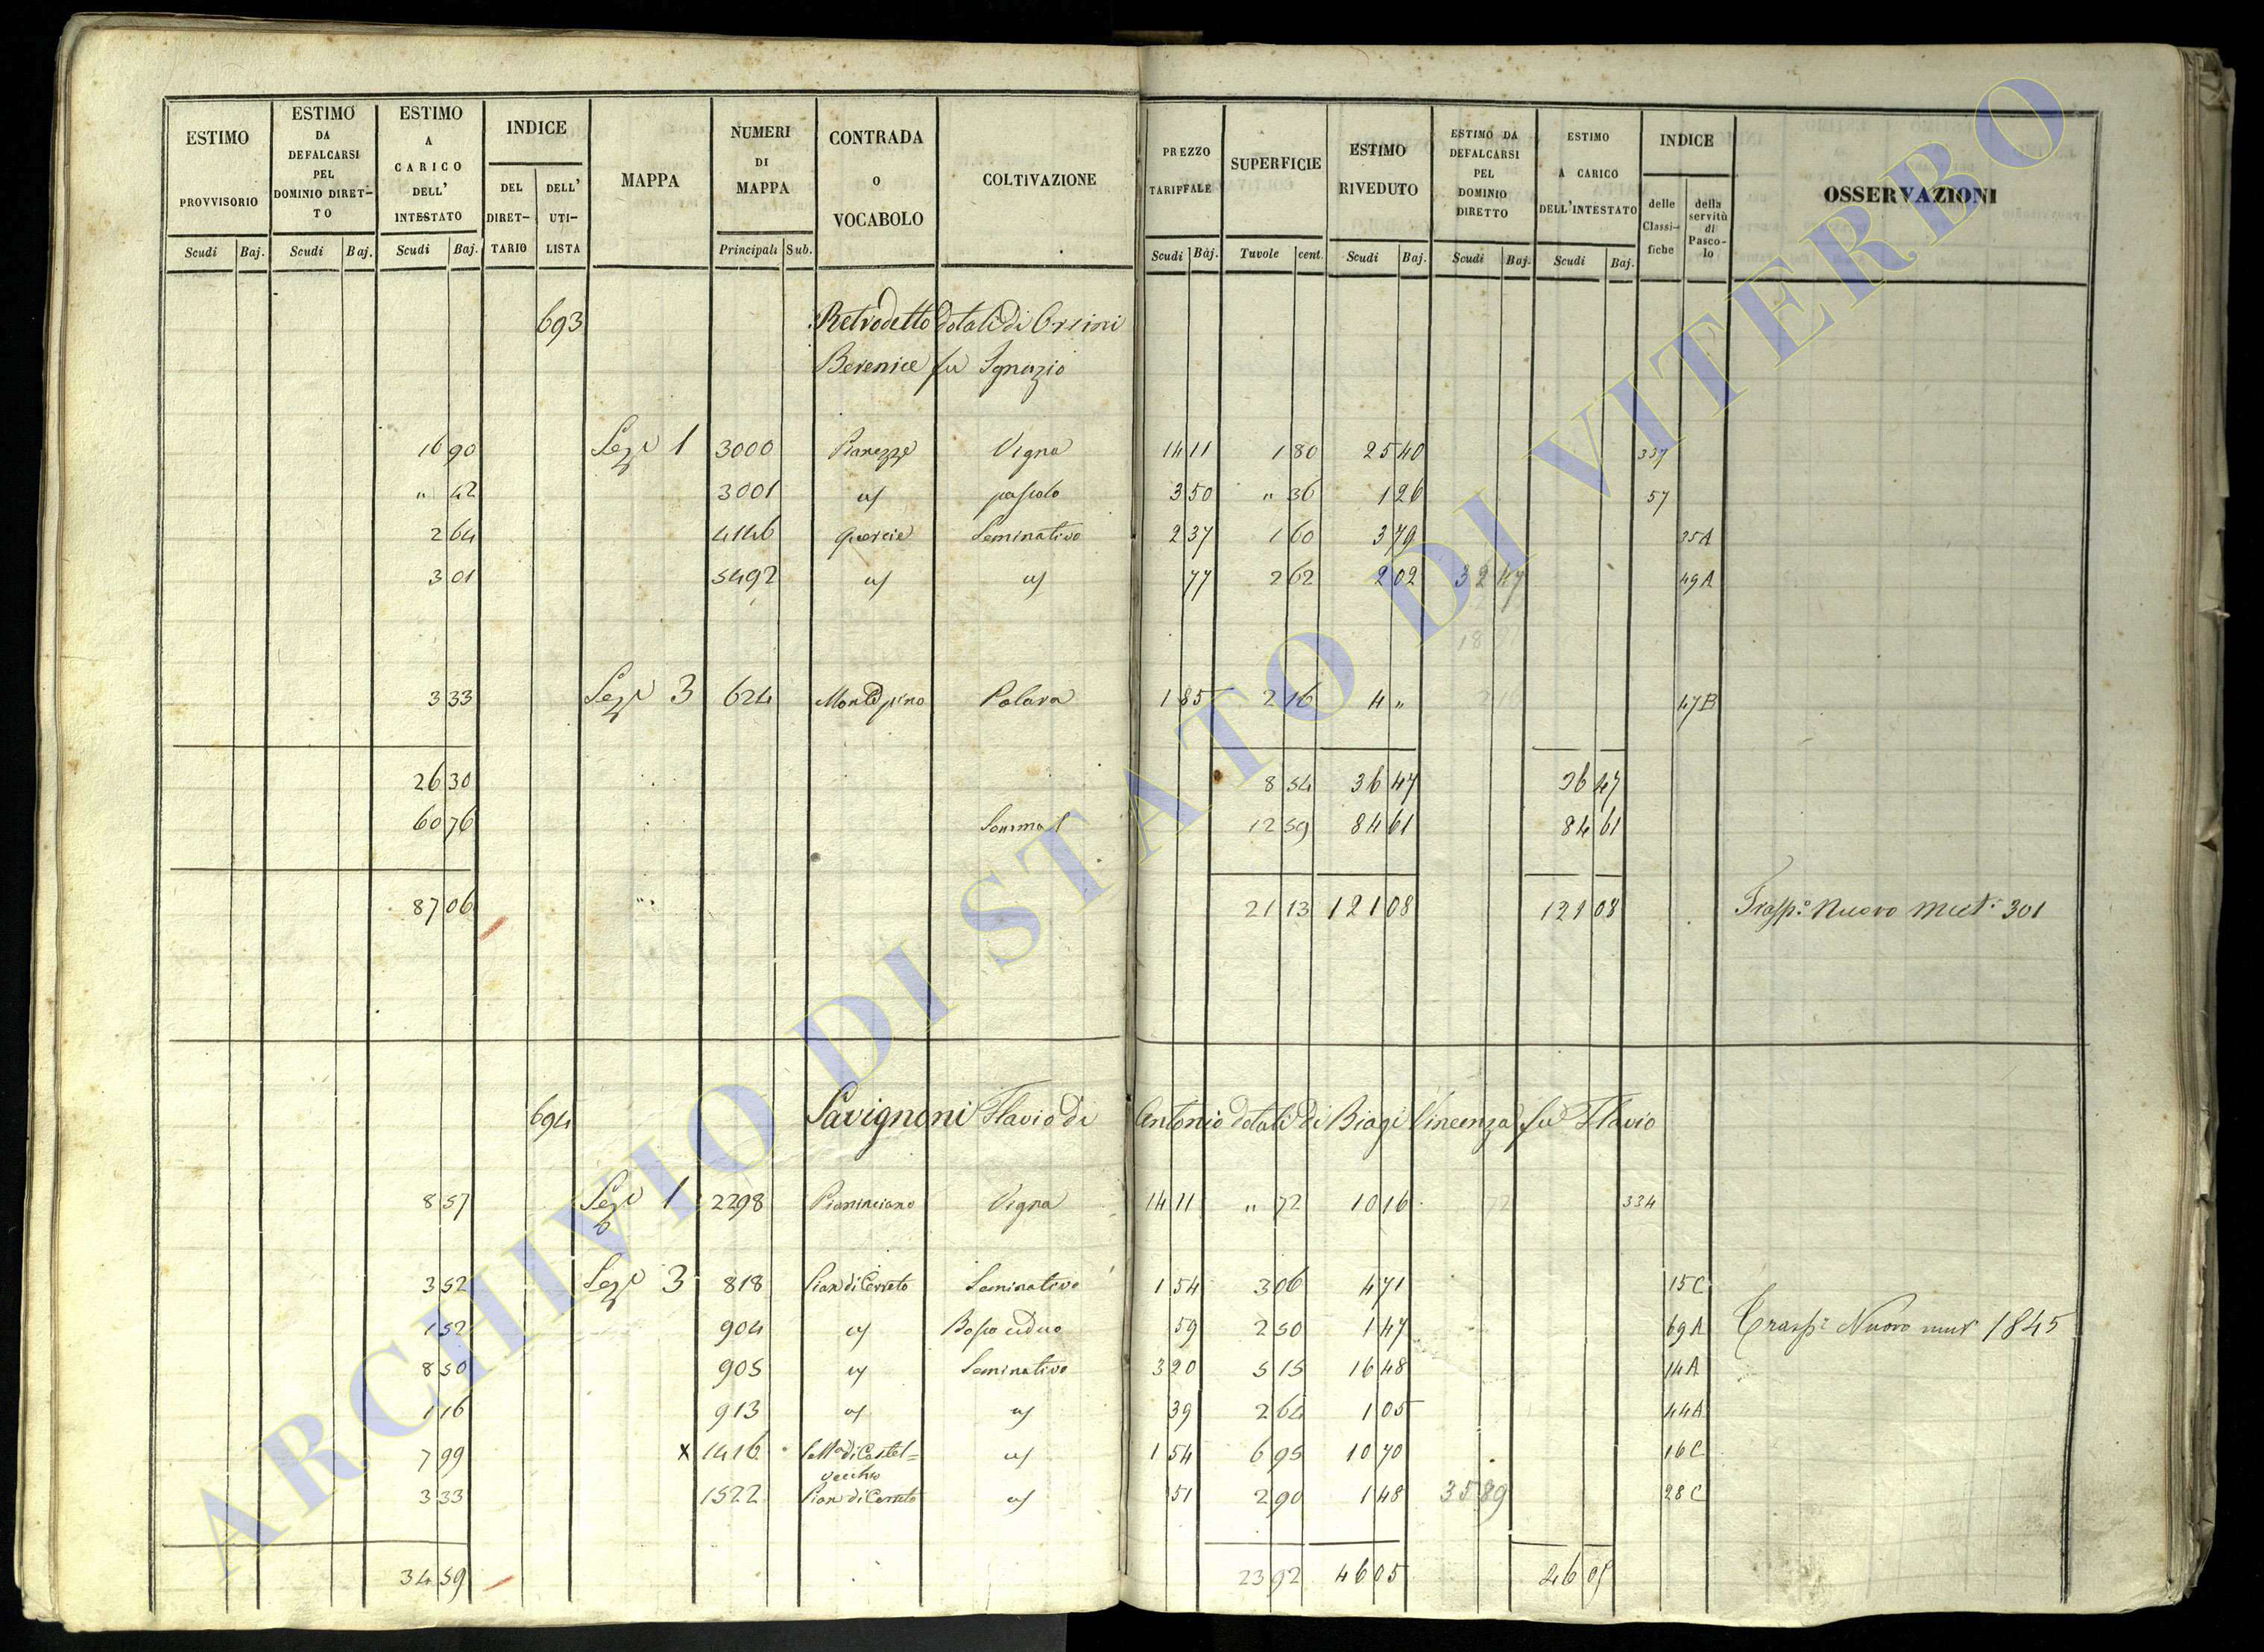 ESTIMO PROVVISORIO Scudi Baj.
ESTIMO DA DEFALCARSI PEL DOMINIO DIRET-TO Scudi Baj.
ESTIMO A CARICO DELL' INTESTATO Scudi Baj.
INDICE DEL DIRET-TARIO DELL' UTI-LISTA
MAPPA
NUMERI DI MAPPA Principali Sub.
CONTRADA O VOCABOLO
COLTIVAZIONE
PREZZO TARIFFALE Scudi Baj.
SUPERFICIE Tavole cent.
ESTIMO RIVEDUTO Scudi Baj.
ESTIMO DA DEFALCARSI PEL DOMINIO DIRETTO Scudi Baj.
ESTIMO A CARICO DELL'INTESTATO Scudi Baj.
INDICE delle Classi-fiche della servitù di Pasco-lo
OSSERVAZIONI
693 Retrodetto dotali di Orsini
Berenice fu Ignazio
16 90 Sez. 1 3000 Pianezze Vigna 14 11 1 80 25 40 337
" 42 3001 pascolo 3 50 " 36 1 26 57
2 64 4146 Quercie Seminativo 2 37 1 60 3 79 35A
3 01 5492 77 2 62 2 02 32 47 49A
3 33 Sez. 3 624 Montepino Polara 1 85 2 16 4 " 47B
26 30 8 54 36 47 36 47
60 76 Somma 12 59 84 61 84 61
87 06 21 13 121 08 121 08 Trasp.o Nuovo 301
694 Savignoni Flavio di Antonio dotali di Biagi Vincenza fu Flavio
8 57 Sez. 1 2298 Pianinciano Vigna 14 11 " 72 10 16 72 334
3 52 Sez. 3 818 Pian di Cerreto Seminativo 1 54 3 06 4 71 15C
1 52 904 Bosco ceduo 59 2 50 1 47 69A Trasp. Nuovo 1845
8 50 905 Seminativo 3 20 5 15 16 48 14A
1 16 913 39 2 64 1 05 44A
7 99 x 1416 di Castel=
vecchio 1 54 6 95 10 70 16C
3 33 1522 Pian di Cerreto 51 2 90 1 48 35 89 28C
34 59 23 92 46 05 46 05
ARCHIVIO DI STATO DI VITERBO